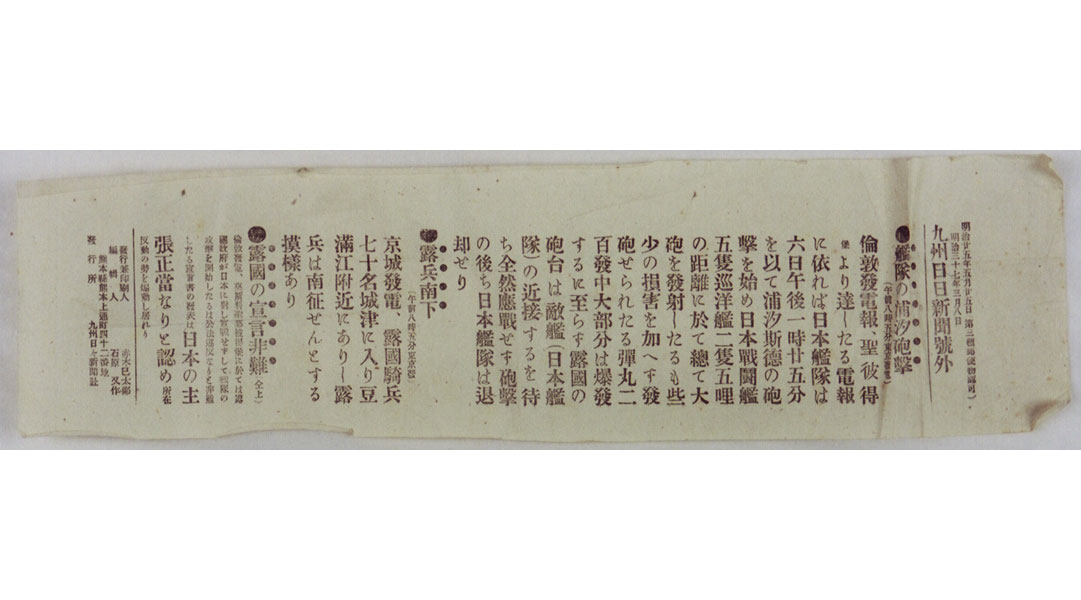 明治廿五年五月廿五日 第三種郵便物認可)
明治三十七年三月八日
九州日日新聞號外
●艦隊の浦汐砲擊
(午前八時五分東京發電)
倫敦發電報、聖彼得
堡より達したる電報
に依れば日本艦隊は
六日午後一時廿五分
を以て浦汐斯德の砲
擊を始め日本戰鬪艦
五隻巡洋艦二隻五哩
の距離に於て總て大
砲を發射したるも些
少の損害を加へず發
砲せられたる彈丸二
百發中大部分は爆發
するに至らず露國の
砲台は敵艦(日本艦
隊)の近接するを待
ち全然應戰せず砲擊
の後ち日本艦隊は退
却せり
●露兵南下
(午前八時五分東京發)
京城發電、露國騎兵
七十名城津に入り豆
滿江附近にありし露
兵は南征せんとする
摸樣あり
●露國の宣言非難(仝上)
したる宣言書の發表は日本の主
張正當なりと認め所在
反動の勢を煽動し居れり
發行兼印刷人 赤木已太郞
編輯人 石原久作
熊本縣熊本上通町四十二番地
發行所 九州日々新聞社